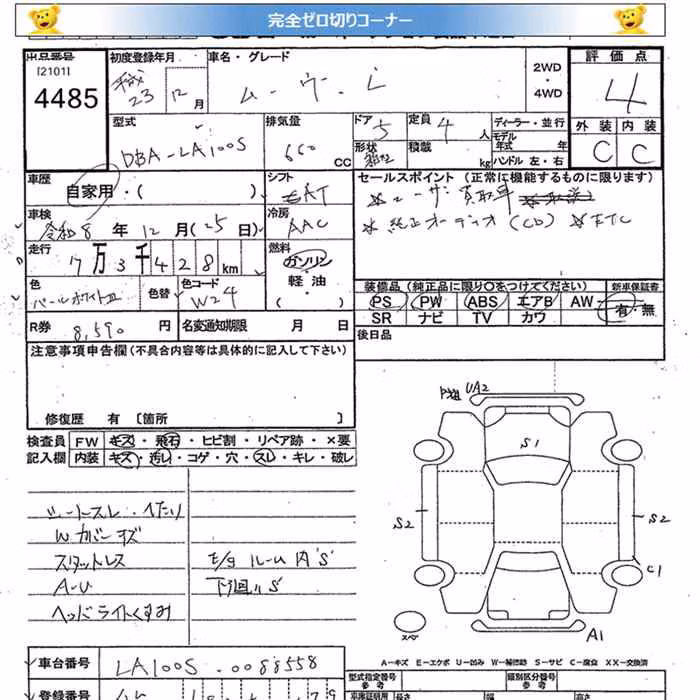 完全ゼロ切りコーナー
出品番号
[2101]
4485
初度登録年月
平成
23 12月
車名・グレード
ムーヴ L
2WD
・
4WD
評価点
4
外装 内装
C C
型式
DBA-LA100S
排気量
660 CC
ドア 5
形状
定員 4 人
積載 kg
ディーラー・並行
モデル
年式 年
ハンドル 左・右
車歴
自家用・( )
シフト
AT
冷房
AAC
セールスポイント (正常に機能するものに限ります)
☆ユーザー買取車
☆純正オーディオ (CD) ☆ETC
車検
令和8年12月(25日)
走行
7万3千428km
燃料
ガソリン
軽油
( )
色
パールホワイトIII
色替
色コード
W24
装備品 (純正品に限り○をつけてください)
新車保証書
PS PW ABS エアB AW
有・無
SR ナビ TV カワ
R券 8,590円
名変通知期限 月 日
後日品
注意事項申告欄 (不具合内容等は具体的に記入して下さい)
修復歴 有 [箇所 ]
検査員
記入欄
FW キズ・飛石・ヒビ割・リペア跡・×要
内装 キズ・汚レ・コゲ・穴・スレ・キレ・破レ
シートスレ・へたり
Wカバーキズ
スタットレス
A-U
ヘッドライトくすみ
E/gルーム内"S"
下回り"S"
UA2
S1
S2
S2
C1
A1
スペア
A—キズ E—エクボ U—凹み W—補修跡 S—サビ C—腐食 XX—交換済
車台番号
LA100S-0088558
登録番号
型式指定番号
参考
類別区分番号
参考
車庫証明用
長さ
幅
高さ